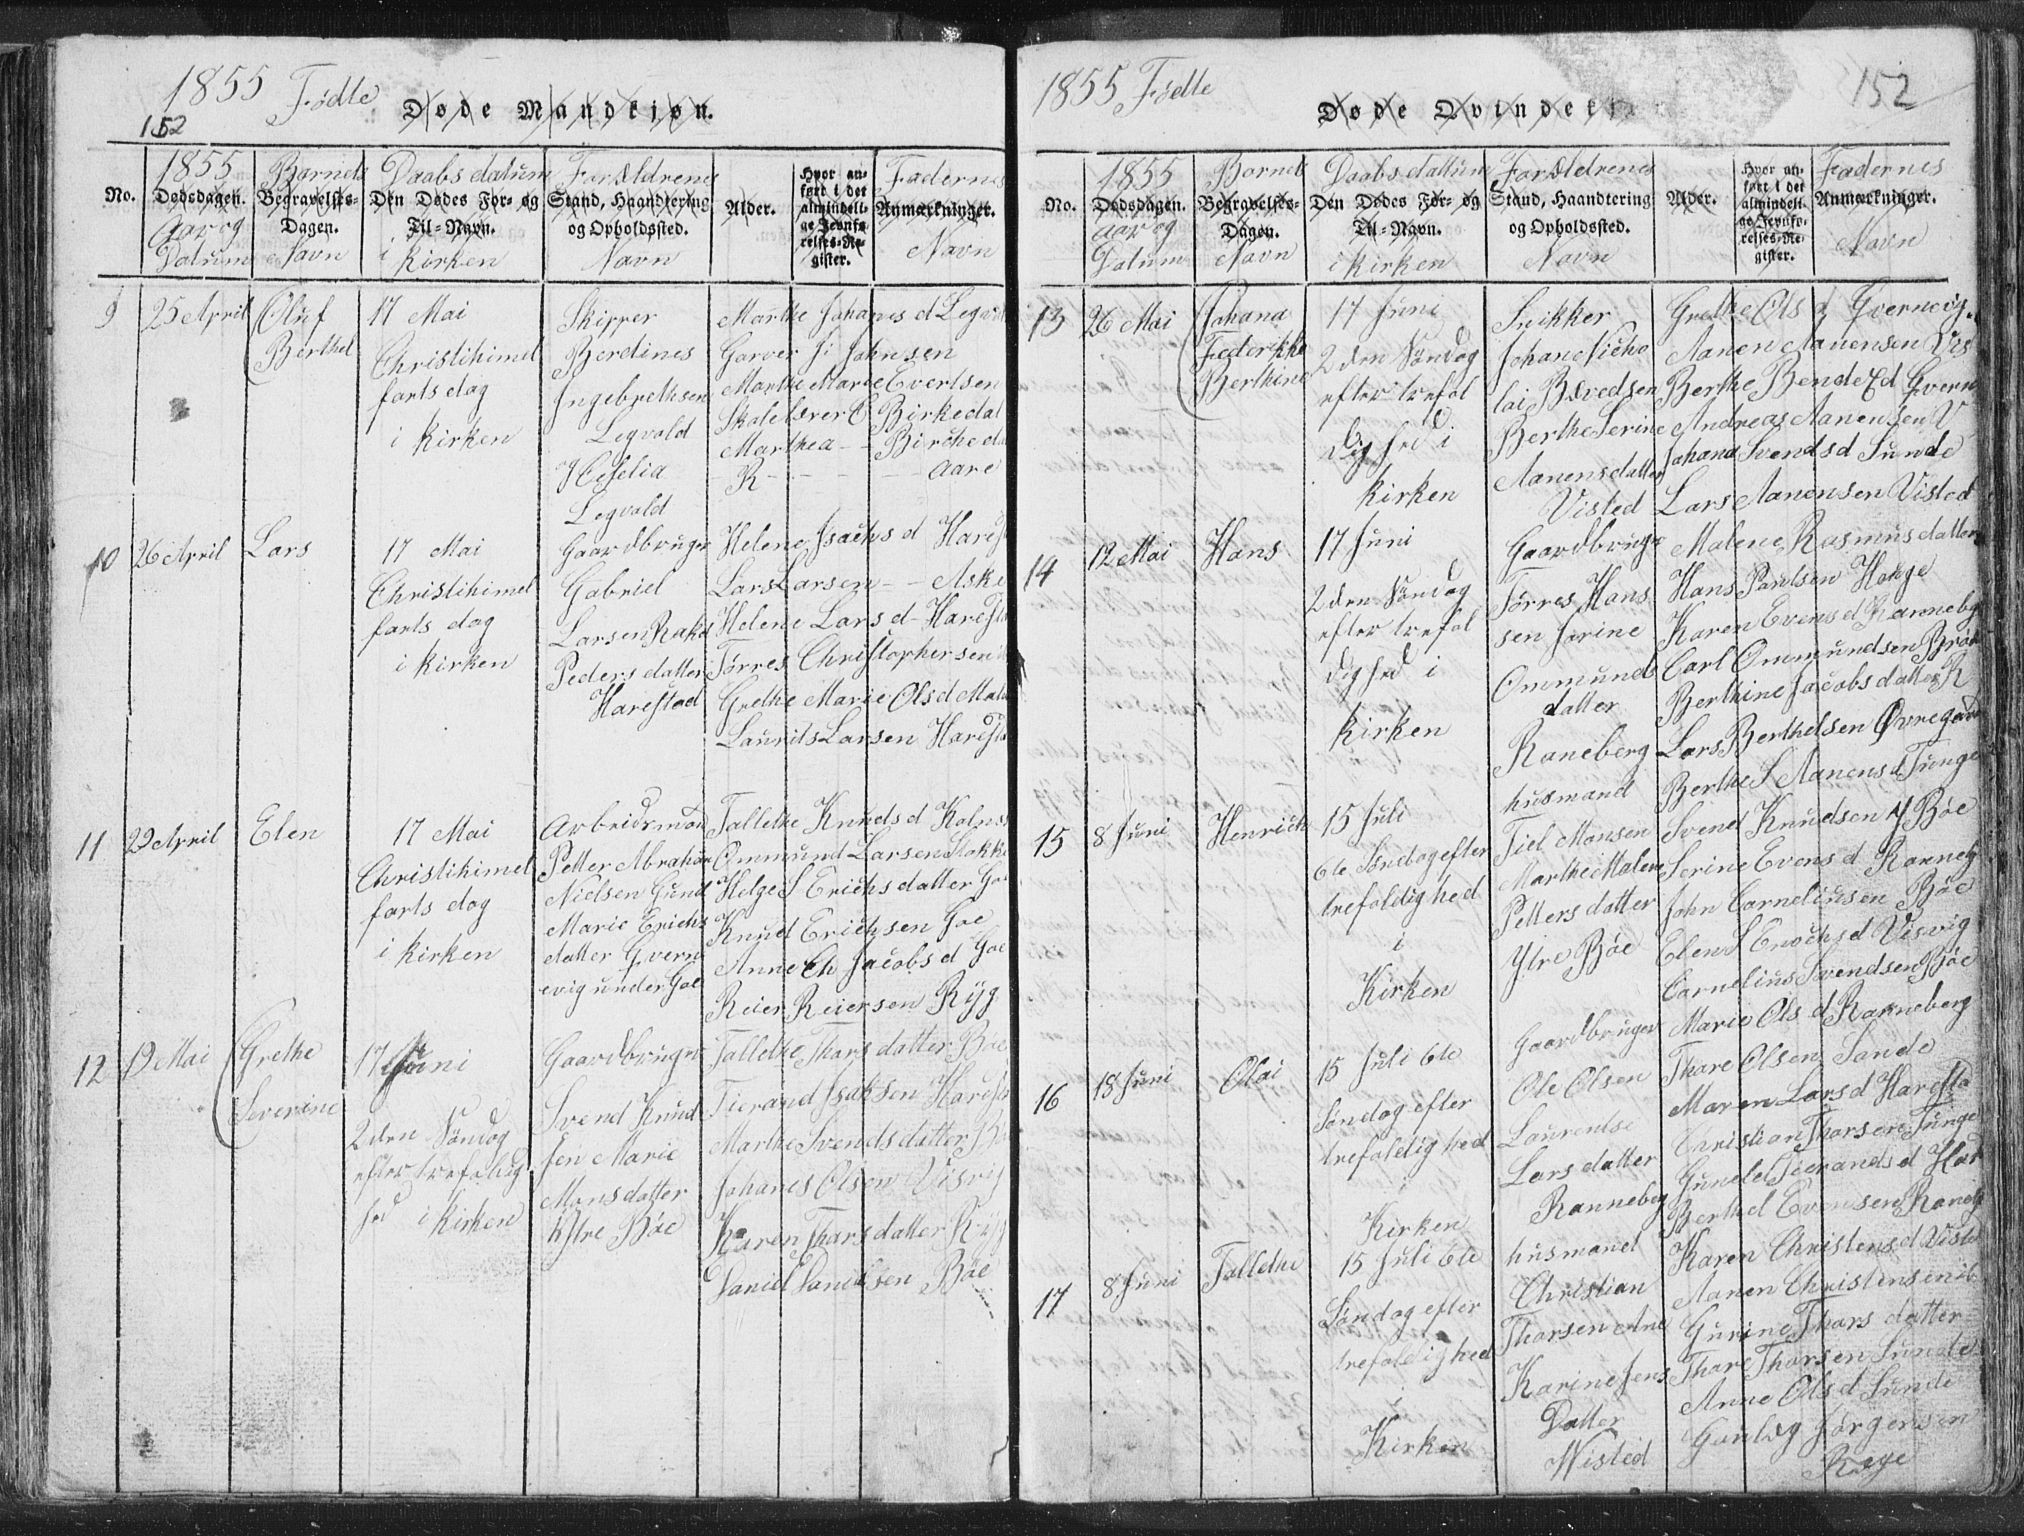 1855 Fødte
152
Døde Mandkjøn.
No.
1855
Dødsdagen.
Aar og
Datum
Barnets
Begravelses-
Dagen.
Navn
Daabs datum
Den Dødes For- og
Til-Navn.
i Kirken
Forældrenes
Stand, Haandtering
og Opholdssted.
Navn
Alder.
Hvor an-
ført i det
almindeli-
ge Jevnfø-
relses-Re-
gister.
Fadernes
Anmærkninger.
Navn
9
25 April
Oluf
Berthel
17 Mai
Christihimel
farts dag
i Kirken
Skipper
Berdines
Ingebrethsen
Legvold
Legvold
Marthe Johanes d
Garver J Johnsen
Marthe Marie Evertsen
Skolelærer E Birkedal
Marthea - - Birkeda
R - - - - Aare
10
26 April
Lars
17 Mai
Christihimel
farts dag
i Kirken
Gaardbruger
Gabriel
Larsen
Peders datter
Harestad
Helene Isachs d Harest
Lars Larsen - - Aske
Helene Lars d Haresta
Tørres Christophersen
Grethe Marie Ols d
Laurits Larsen Haresta
11
29 April
Elen
17 Mai
Christihimel
farts dag
i Kirken
Arbeidsman
Petter Abraham
Nielsen Gund
Marie Erichs
datter Gvern
evig under Goe
Tallethe Knuds d
Ommund Larsen Stokke
Helge S Erichs datter Go
Knud Erichsen Goe
Anne Eli Jacobs d Goe
Reier Reiersen Ryg
12
19 Mai
Grethe
Severine
17 Juni
2den Søndag
efter trefoldig
hed i Kirken
Gaardbruger
Svend Knud
sen Marie
Mons datter
Ytre Bøe
Tallethe Thors datter Bøe
Tierand Isaksen Harest
Marthe Svends datter Bø
Johanes Olsen Visvig
Karen Thors datter Ryg
Daniel Danielsen Bøe
1855 Fødte
152
No.
1855
Dødsdagen.
Aar og
Datum
Barnets
Begravelses-
Dagen.
Navn
Daabs dattum
Den Dødes For- og
Til-Navn.
i Kirken
Forældrenes
Stand, Haandtering
og Opholdssted.
Navn
Alder.
Hvor an-
ført i det
almindeli-
ge Jevnfø-
relses-Re-
gister.
Fadernes
Anmærkninger.
Navn
13
26 Mai
Johana
Federikke
Berthine
17 Juni
2den Søndag
efter trefol
dighed i
Kirken
Snikker
Johan Nicho
lai
Berthe Serine
Aanensdatter
Visted
Grethe Ols d Gvernevig
Aanen Aanensen Vis
Berthe Bende Gvern
Andreas Aanensen V
Johana Svends d Sunde
Lars Aanensen Visted
14
12 Mai
Hans
17 Juni
2den Søndag
efter trefol
dighed i
Kirken
Gaardbruger
Tørres Hans
sen
Ommund
datter
Raneberg
Malene Rasmusdatter
Hans Paulsen Hauge
Karen Evens d Ranneb
Carl Ommundsen
Berthine Jacobs datter R
Lars Berthelsen Øvregaard
Berthe S Aanens d Tunge
15
8 Juni
Henrich
15 Juli
6te Søndag efter
trefoldighed
i
Kirken
husmand
Tiel Monsen
Marthe Malene
Petters datter
Ytre Bøe
Svend Knudsen Y Bøe
Serine Evens d Ranneb
John Corneliusen Bøe
Elen S Enochs d Visvig
Cornelius Svendsen Bøe
Marie Ols d Ranneberg
16
18 Juni
Olai
15 Juli 6te
Søndag efter
trefoldighed
i
Kirken
Gaardbruger
Ole Olsen
Laurentse
Lars datter
Ranneberg
Thore Olsen Sande
Maren Lars d Haresta
Christian Thorsen Tunge
Gunele Tierands d Har
Berthel Evensen Raneb
17
8 Juni
Tallethe
15 Juli 6te
Søndag efter
trefoldighed
i
Kirken
husmand
Christian
Thorsen Ane
Karine Jens
Datter
Wisted
Karen Christens d Viste
Aanen Christensen ib
Gurine Thors datter
Thore Thorsen Sunde
Anne Ols d Sunde
Jørgensen